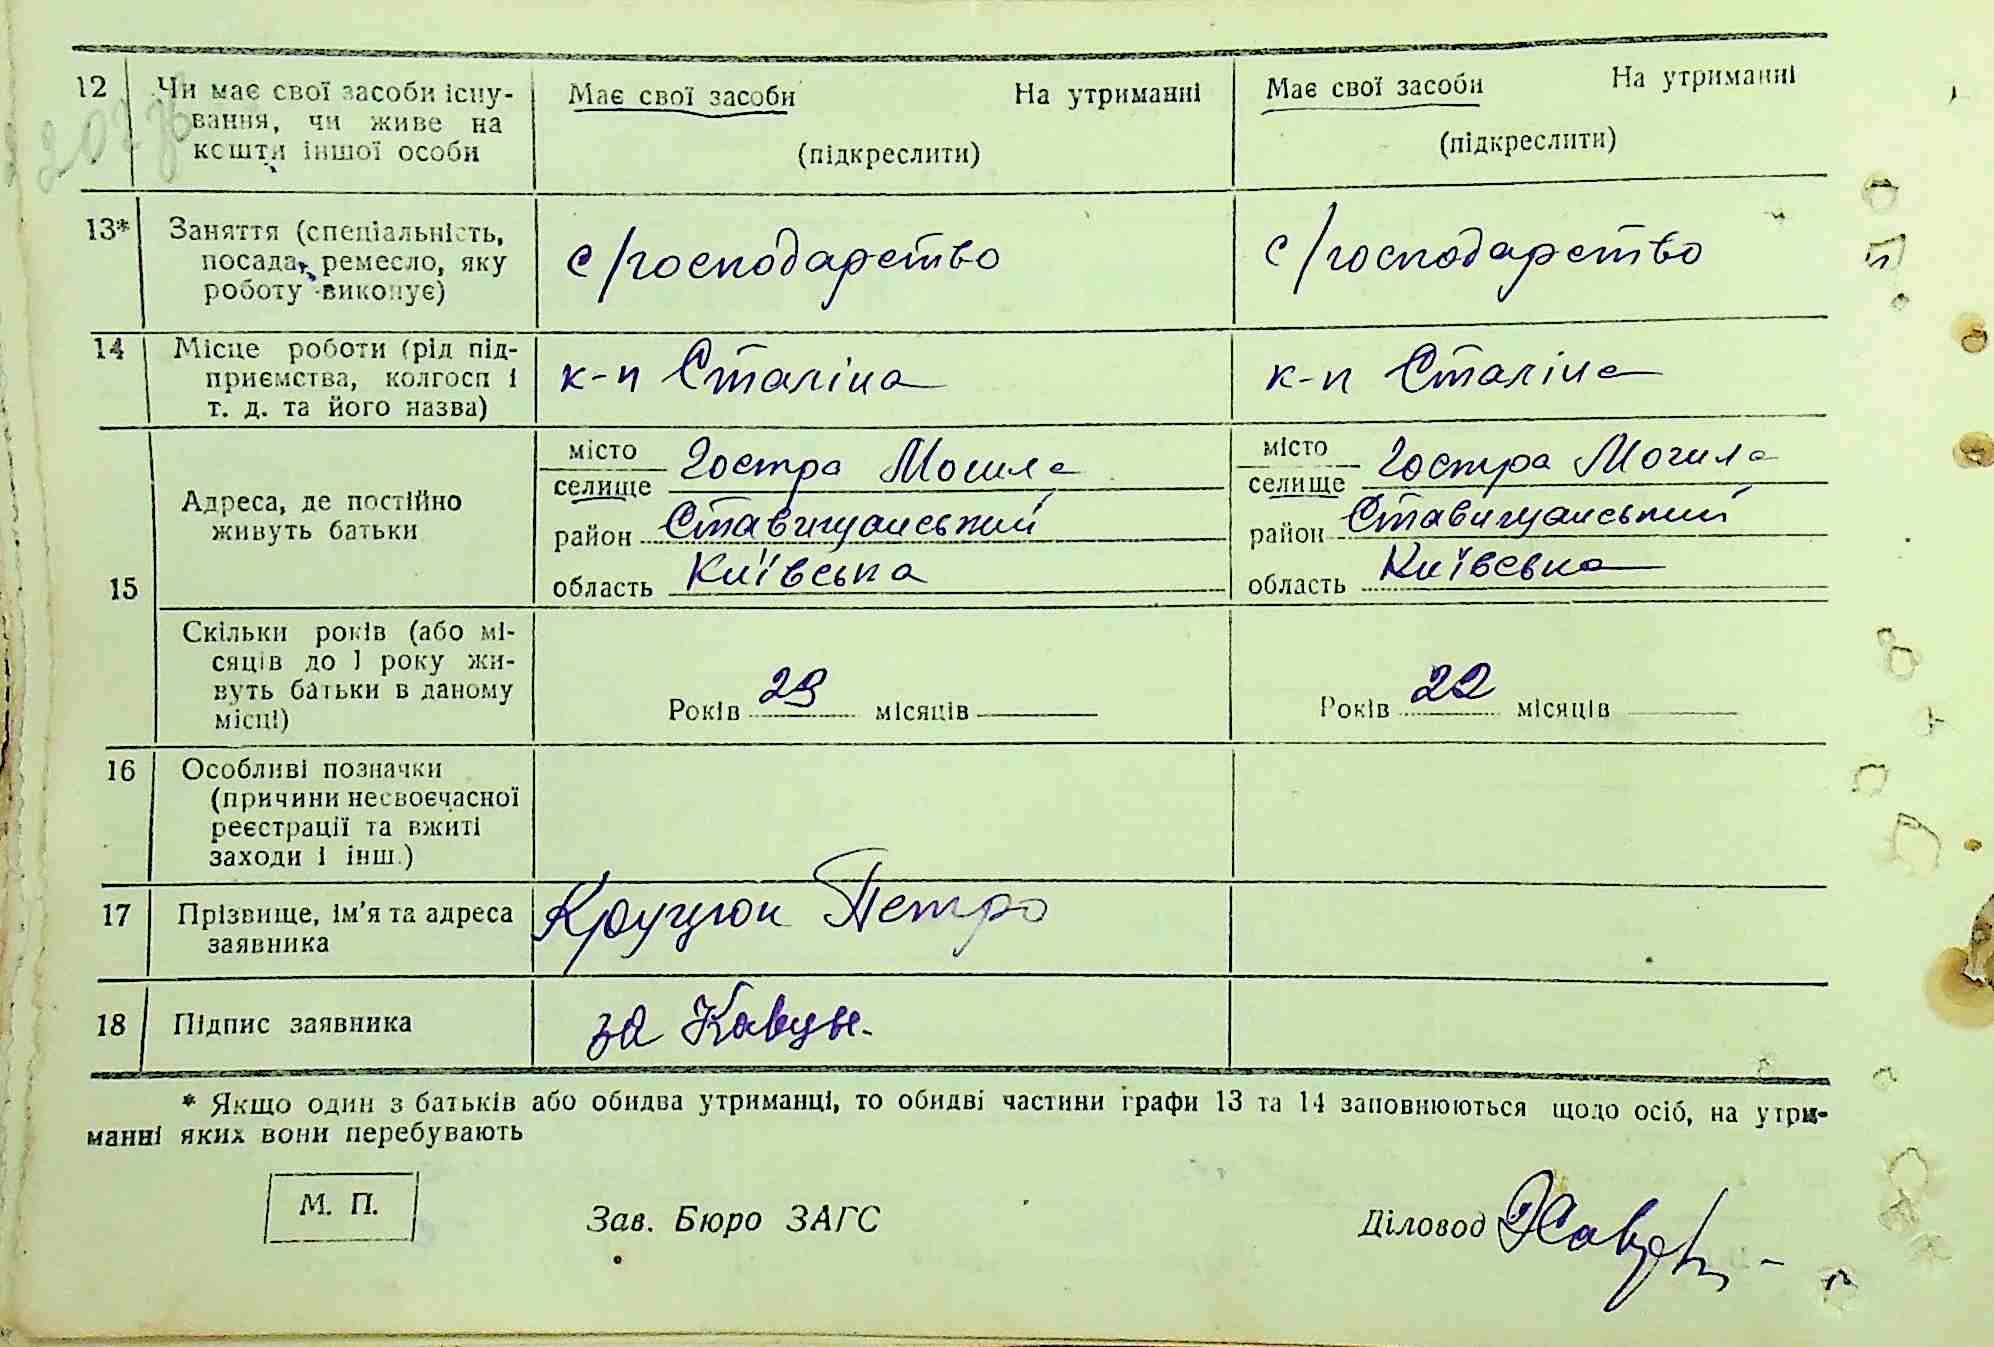 12 Чи має свої засоби існу- Має свої засоби На утриманні Має свої засоби На утриманні
вання, чи живе на
кошти іншої особи (підкреслити) (підкреслити)
13* Заняття (спеціальність,
посада, ремесло, яку с/господарство с/господарство
роботу виконує)
14 Місце роботи (рід під-
приємства, колгосп і к-п Сталіна к-п Сталіна
т. д. та його назва)
місто місто
Гостра Могила Гостра Могила
селище селище
Адреса, де постійно
живуть батьки район Ставищанський район Ставищанський
15 область Київська область Київська
Скільки років (або мі-
сяців до 1 року жи-
вуть батьки в даному Років 23 місяців Років 22 місяців
місці)
16 Особливі позначки
(причини несвоєчасної
реєстрації та вжиті
заходи і інш.)
17 Прізвище, ім'я та адреса Петро
заявника
18 Підпис заявника за
* Якщо один з батьків або обидва утриманці, то обидві частини графи 13 та 14 заповнюються щодо осіб, на утри-
манні яких вони перебувають
М. П. Зав. Бюро ЗАГС Діловод